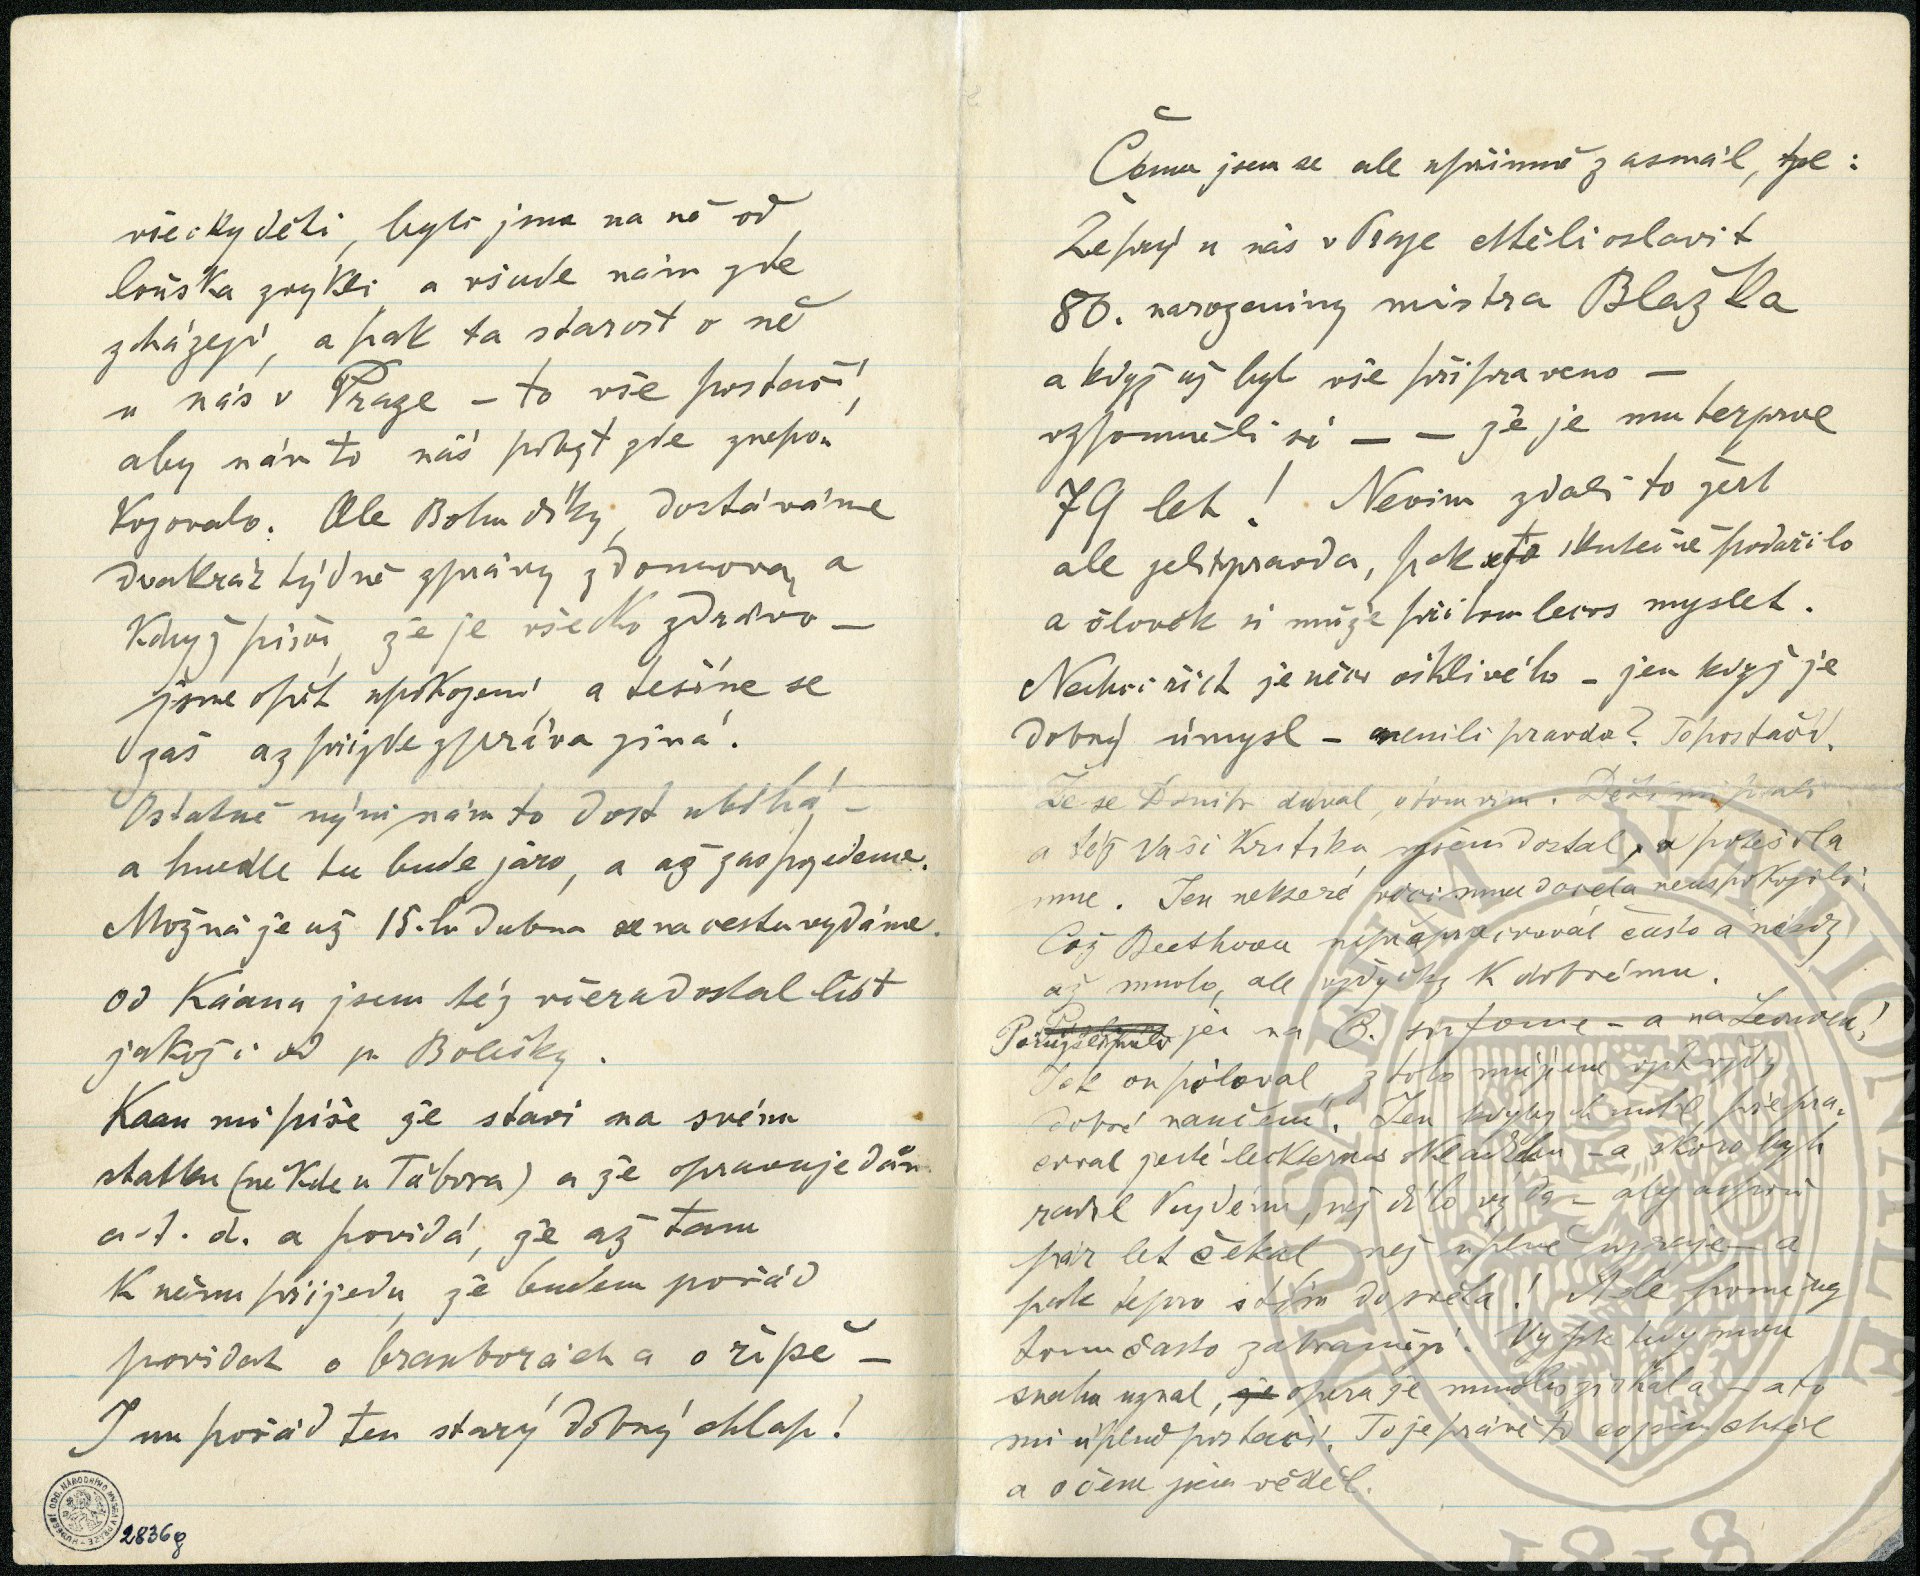 všecky děti, byli jsme na ně od
loňska zvykli, a všude nám zde
zcházejí, a pak ta starost o ně
u nás v Praze – to vše postačí,
aby nám to náš pobyt zde znepo-
kojovalo. Ale Bohu díky, dostáváme
dvakrát týdně zprávy z domova, a
když píšou, že je všecko zdrávo –
jsme opět upokojeni a tešíme se
zas až přijde zpráva jiná.
Ostatně nýni nám to dost ubíhá –
a hnedle tu bude járo, a až zas pojedeme.
Možná je už 15.ho dubna se na cestu vydáme.
od Káana jsem též včera dostal list
jakož i od p. Bolešky.
Kaan mi píše že staví na svém
statku (někde u Tábora) a že opravuje dům
a. t. d. a povídá, že až tam
k němu přijedu, že budem pořád
povídat o bramborách a o řípě –
Inu pořád ten starý dobrý chlap!
2836g
Čemu jsem se ale upřimně zasmál, je:
Že prý u nás v Praze chtěli oslavit
80. narozeniny mistra Blažka
a když už byl vše připraveno –
vzpomněli si – – že je mu terprve
79 let! Nevim zdali to žert
ale jeli pravda, pak se to skutečně podařilo
a člověk si může při tom lecos myslet.
Nechci řict je něco ošklivého – jen když je
dobrý úmysl – není-li pravda? To postačí.
Že se Dimitr dával, o tom vím. Děti mi psali
a též Vaši kritiku, jsem dostal, a potešila
mne. Jen nekteré věci mne docela neuspokojili.
Což Beethoven přepracovával často a někdy
až mnoho, ale vždycky k dobrému.
jen na 9. sinfonie – a na Leonoru!
Jak on piloval, z toho můžeme vzít vždy
dobré naučení. Jen kdybych mohl přepra-
covat ještě leckterou skladbu – a skoro bych
radil každému, než dílo vydá – aby aspoň
pár let čekal než úplně uzraje – a
pak tepro s tím do světa! Ale poměry
tomu často zabraňují. Vy jste tedy mou
snahu uznal, že opera je mnoho získala – a to
mi úplně postačí. To je právě to co jsem chtěl
a o čem jsem věděl.
MUSAEUM NATIONALE
1818